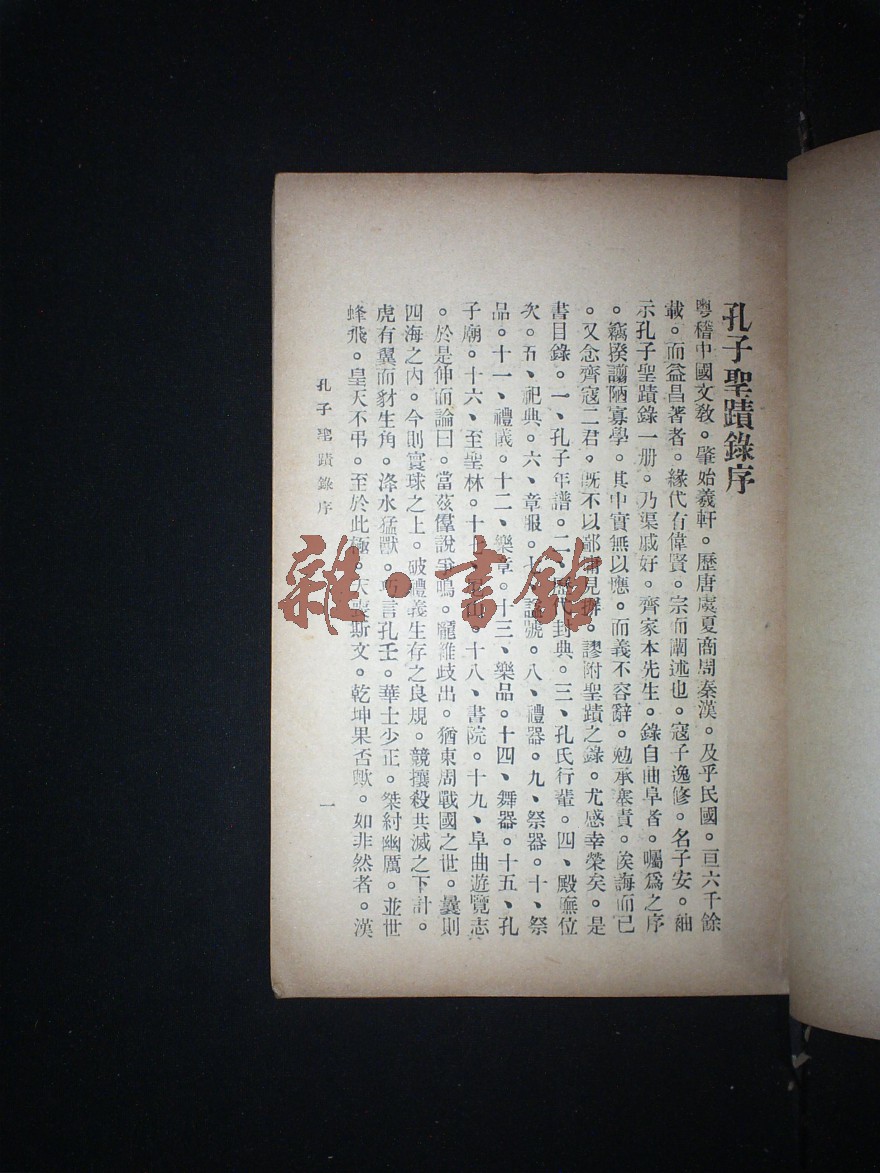 孔子聖蹟錄序
粵稽中國文敎。肇始羲軒。歷唐虞夏商周秦漢。及乎民國。亘六千餘
載。而益昌著者。緣代有偉賢。宗而闡述也。寇子逸修。名子安。袖
示孔子聖蹟錄一册。乃渠戚好。齊家本先生。錄自曲阜者。囑爲之序
。竊揆譾陋寡學。其中實無以應。而義不容辭。勉承塞責。俟誨而已
。又念齊寇二君。旣不以鄙見摒。謬附聖蹟之錄。尤感幸榮矣。是
書目錄。一、孔子年譜。二、歷代封典。三、孔氏行輩。四、殿廡位
次。五、祀典。六、章服。七、諡號。八、禮器。九、祭器。十、祭
品。十一、禮儀。十二、樂章。十三、樂品。十四、舞器。十五、孔
子廟。十六、至聖林。十七、山。十八、書院。十九、阜曲遊覽志
。於是仲而論曰。當茲羣說爭鳴。龐雜歧出。猶東周戰國之世。曩則
四海之內。今則寰球之上。破禮義生存之良規。競攘殺共滅之下計。
虎有翼而豺生角。洚水猛獸。巧言孔壬。華士少正。桀紂幽厲。並世
蜂飛。皇天不弔。至於此極。天喪斯文。乾坤果否歟。如非然者。漢
孔子聖蹟錄序
一
雜·書館